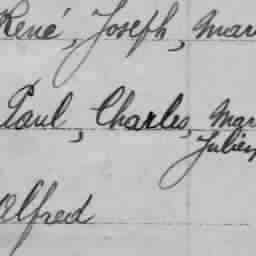 René, Joseph, Mar
Paul, Charles, Mar
Julien
Alfred